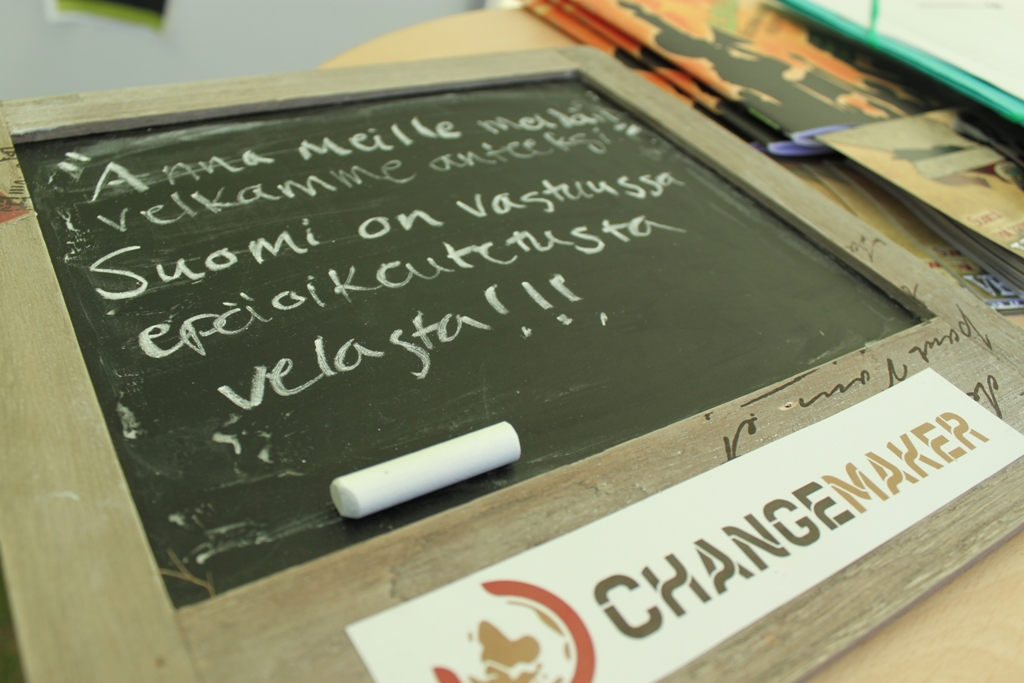 "Anna meille meidän
velkamme anteeksi!"
Suomi on vastuussa
epäoikeutetusta
velasta!!!
CHANGEMAKER